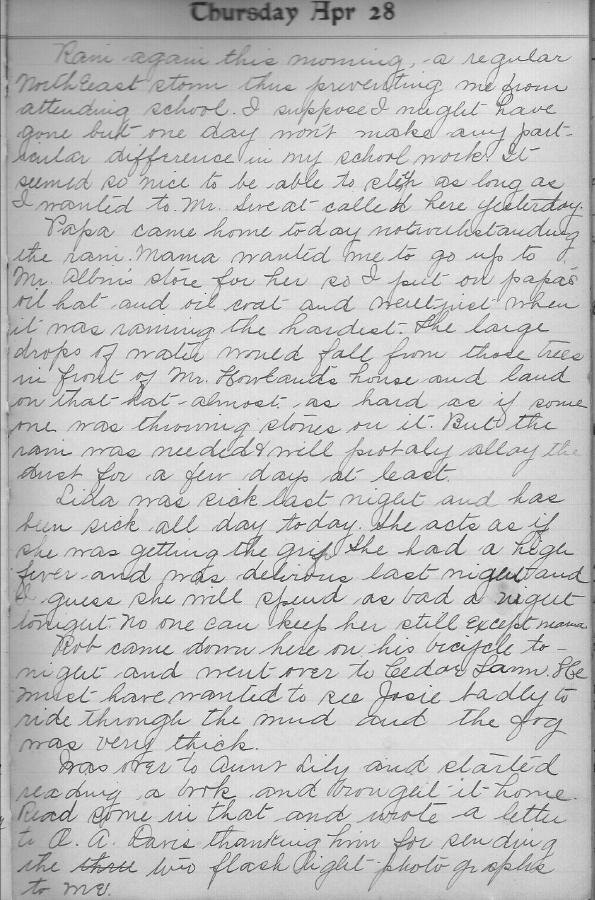 Thursday Apr 28
Rain again this morning, a regular
Northeast storm thus preventing me from
attending school. I suppose I might have
gone but one day won't make any part-
icular difference in my school work. It
seemed so nice to be able to sleep as long as
I wanted to. Mr. Sweat called here yesterday.
Papa came home today notwithstanding
the rain. Mama wanted me to go up to
Mr. Albin's store for her so I put on papa's
oil hat and oil coat and went just when
it was raining the hardest. The large
drops of water would fall from those trees
in front of Mr. Howland's house and land
on that hat almost as hard as if some
one was throwing stones on it. But the
rain was needed & will probaly allay the
dust for a few days at least.
Lida was sick last night and has
been sick all day today. She acts as if
she was getting the grip. She had a high
fever and was delirious last night and
I guess she will spend as bad a night
tonight. No one can keep her still except mama
Rob came down here on his bicycle to-
night and went over to Cedar Lawn. He
must have wanted to see Josie badly to
ride through the mud and the fog
was very thick.
Was over to Aunt Lily and started
reading a book and brought it home.
Read some in that and wrote a letter
to O. A. Davis thanking him for sending
the three two flash light photographs
to me.